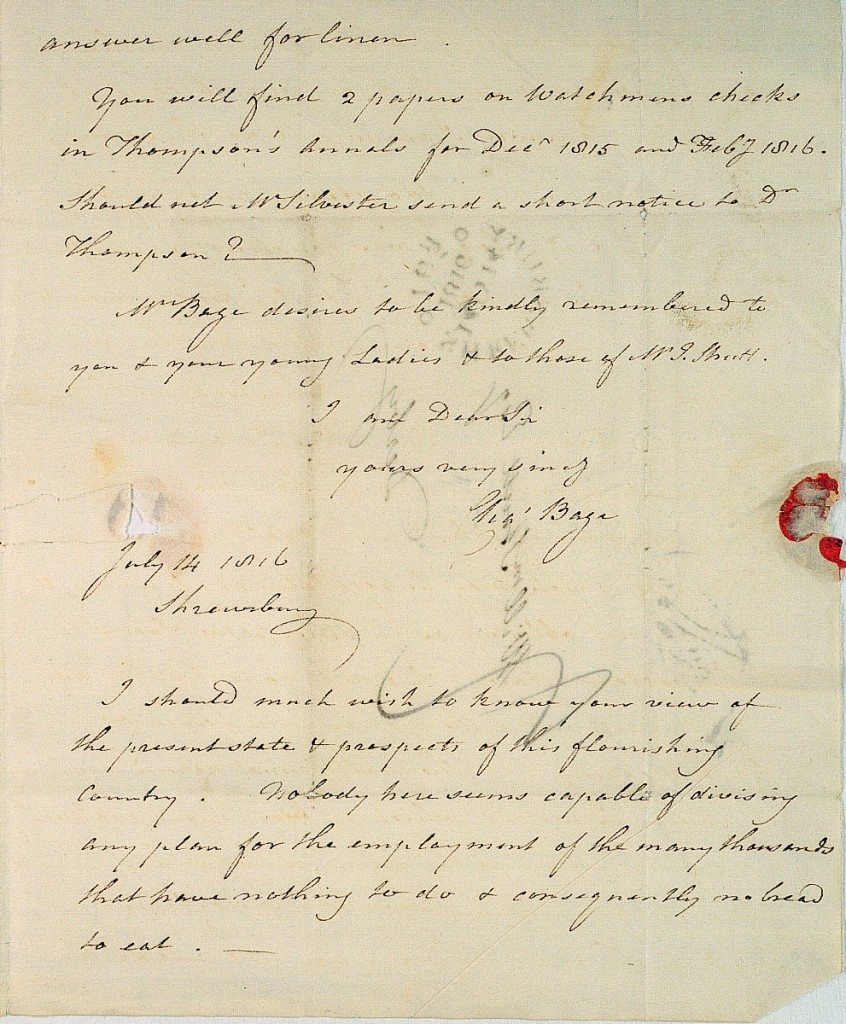 answer well for linen .
You will find 2 papers on Watchmens checks
in Thompson's Annals for Decr 1815 and Feby 1816.
Should not Mr Silvester send a short notice to Dr
Thompson ?
Mrs Bage desires to be kindly remembered to
you & your young Ladies & to those of Mr J. Strutt.
I am Dear Sir
yours very sincy
Chas Bage
July 14 1816
Shrewsbury
I should much wish to know your view of
the present state & prospects of this flourishing
Country . Nobody here seems capable of divising
any plan for the employment of the many thousands
that have nothing to do & consequently no bread
to eat . —